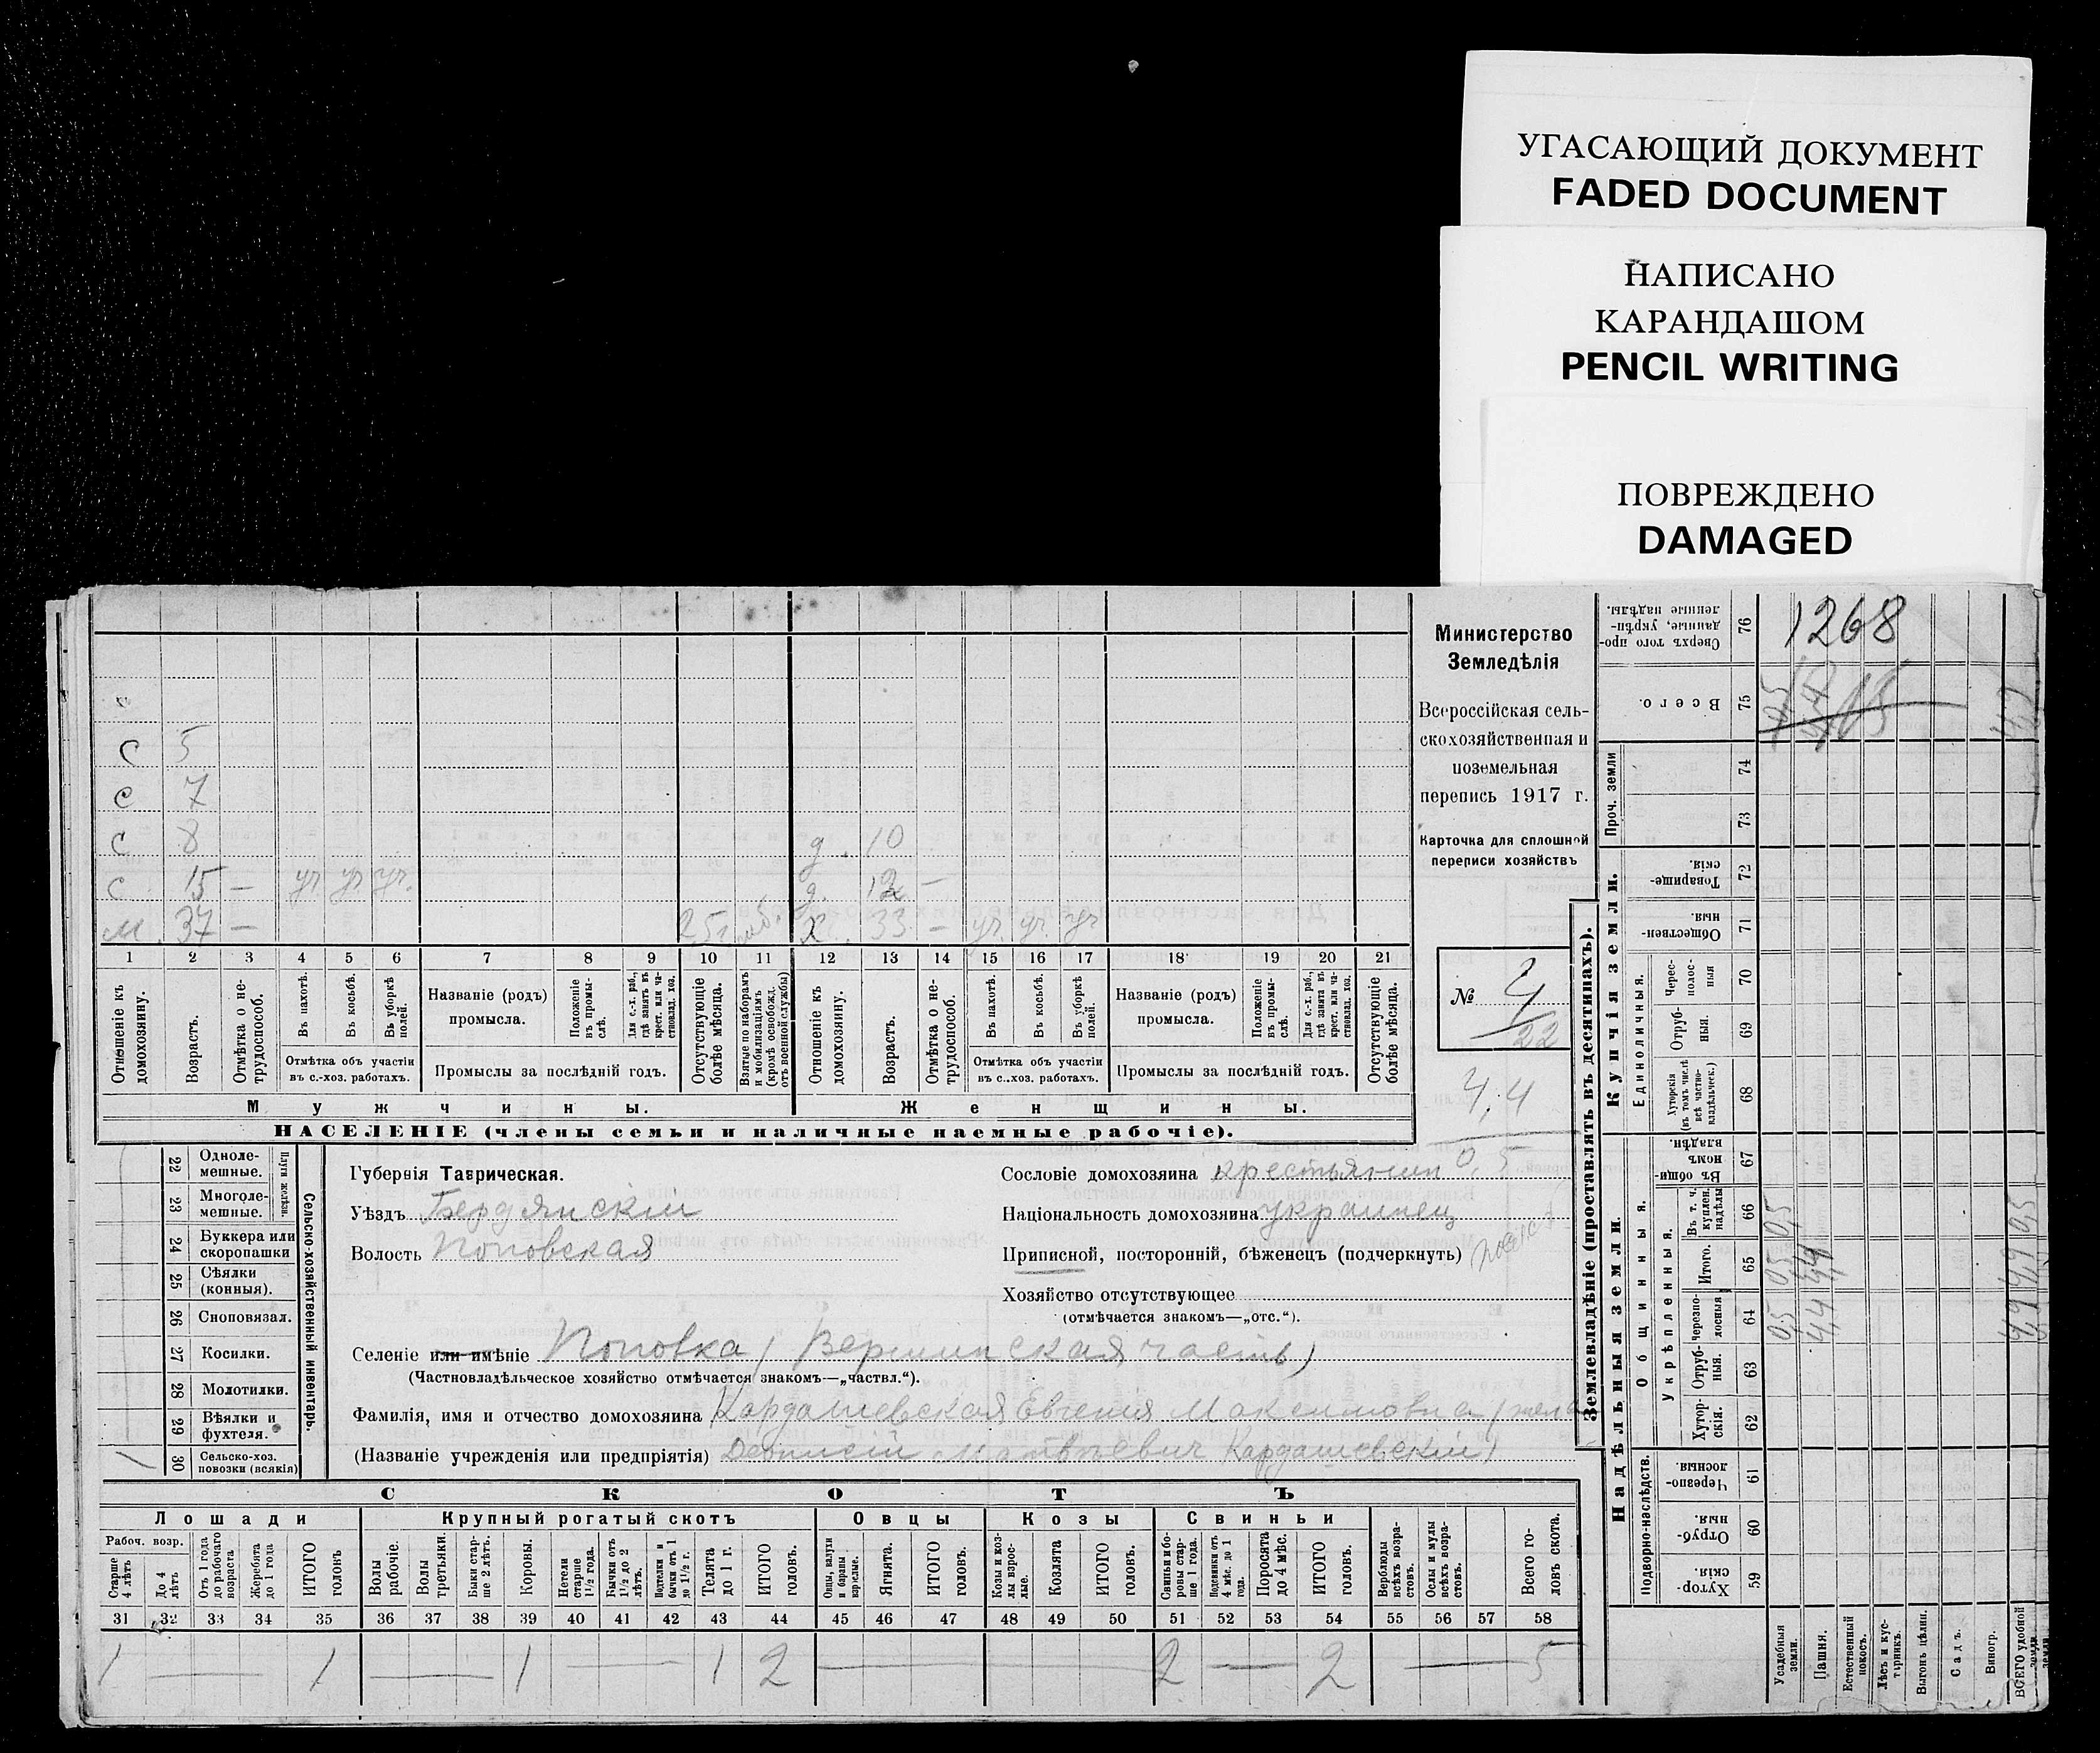 УГАСАЮЩИЙ ДОКУМЕНТ
FADED DOCUMENT
НАПИСАНО
КАРАНДАШОМ
PENCIL WRITING
ПОВРЕЖДЕНО
DAMAGED
Министерство
Земледѣлія
Всероссійская сель-
скохозяйственная и
поземельная
перепись 1917 г.
Карточка для сплошной
переписи хозяйствъ
№ 4
22
4,4
0,5
С 5
С 7
С 8 д. 10
С 15 — уч уч уч. д. 12 —
м. 37 — х 33 — уч. уч. уч
1 2 3 4 5 6 7 8 9 10 11 12 13 14 15 16 17 18 19 20 21
Отношеніе къ домохозяину.
Возрастъ.
Отмѣтка о не-трудоспособ.
Въ пахотѣ.
Въ косьбѣ.
Въ уборкѣ полей.
Отмѣтка объ участіи
въ с.-хоз. работахъ.
Названіе (родъ)
промысла.
Положеніе въ промы-слѣ.
Для с.-х. раб., гдѣ занятъ въ крест. или ча-ствовлад. хоз.
Промыслы за послѣдній годъ.
Отсутствующіе болѣе мѣсяца.
Взятые по наборамъ и мобилизаціямъ (кромѣ освобожд. отъ военной службы)
Отношеніе къ домохозяину.
Возрастъ.
Отмѣтка о не-трудоспособ.
Въ пахотѣ.
Въ косьбѣ.
Въ уборкѣ полей.
Отмѣтка объ участіи
въ с.-хоз. работахъ.
Названіе (родъ)
промысла.
Положеніе въ промы-слѣ.
Для с.-х. раб., гдѣ занята въ крест. или ча-ствовлад. хоз.
Промыслы за послѣдній годъ.
Отсутствующіе болѣе мѣсяца.
Мужчины. Женщины.
НАСЕЛЕНІЕ (члены семьи и наличные наемные рабочіе).
22 Одноле-мешные.
23 Многоле-мешные.
Плуги желѣзн.
24 Буккера или скоропашки
25 Сѣялки (конныя).
26 Сноповязал.
27 Косилки.
28 Молотилки.
29 Вѣялки и фухтеля.
30 Сельско-хоз. повозки (всякія) 1
Сельско-хозяйственный инвентарь.
Губернія Таврическая.
Уѣздъ Бердянскій
Волость Поповская
Сословіе домохозяина крестьянин
Національность домохозяина украинец
Приписной, посторонній, бѣженецъ (подчеркнуть)
Хозяйство отсутствующее
(отмѣчается знакомъ—„отс.“).
Селеніе или имѣніе Поповка (Вершинская часть)
(Частновладѣльческое хозяйство отмѣчается знакомъ—„частвл.“).
Фамилія, имя и отчество домохозяина Кардашевская Евгенія Максимовна (жена
(Названіе учрежденія или предпріятія) Деонисій Матвѣевич Кардашевскій)
СКОТЪ
Лошади Крупный рогатый скотъ Овцы Козы Свиньи
Рабоч. возр.
Старше 4 лѣтъ
До 4 лѣтъ
Отъ 1 года до рабочаго возраста
Жеребята до 1 года
ИТОГО головъ
Волы рабочіе.
Волы третьяки.
Быки стар-ше 2 лѣтъ.
Коровы.
Нетели старше 1½ года.
Бычки отъ 1½ до 2 лѣтъ.
Водтелки и бычки отъ 1 до 1½ г.
Телята до 1 г.
ИТОГО головъ.
Овцы, валухи и бараны взрослые.
Ягнята.
ИТОГО головъ.
Козы и коз-лы взрос-лые.
Козлята
ИТОГО головъ.
Свиньи и бо-ровы стар-ше 1 года.
Подсвинки отъ 4 мѣс. до 1 года.
Поросята до 4 мѣс.
ИТОГО головъ.
Верблюды всѣхъ возра-стовъ.
Ослы и мулы всѣхъ возра-стовъ.
Всего го-ловъ скота.
31 32 33 34 35 36 37 38 39 40 41 42 43 44 45 46 47 48 49 50 51 52 53 54 55 56 57 58
1 — 1 — 1 — 1 2 — 2 — 2 — 5
Землевладѣніе (проставлять въ десятинахъ).
Надѣльныя земли. Купчія земли.
Подворно-наслѣдств.
Общинныя.
Укрѣпленныя.
Единоличныя.
Проч. земли
Сверхъ того про-данные, укрѣп-ленные надѣлы. 76 1268
Всего. 75
74
73
Товарище-скія. 72
Обществен-ныя. 71
Черес-полос-ныя 70
Отруб-ныя. 69
Хуторскія (въ томъ числѣ всѣ частно-владѣльческ.) 68
Въ общин-номъ владѣн. 67
Въ т. ч. куплен. надѣлы 66 0,5 0,5
Итого. 65 0,5 4,4 4,9
Черезпо-лосныя 64 0,5 4,4 4,9
Отруб-ныя. 63
Хутор-скія. 62
Черезпо-лосныя. 61
Отруб-ныя. 60
Хутор-скія. 59
Усадебныя земли.
Пашня.
Естественный покосъ.
Лѣсъ и кус-тарникъ.
Выгонъ цѣлин.
Садъ.
Виногр.
ВСЕГО удобной земли